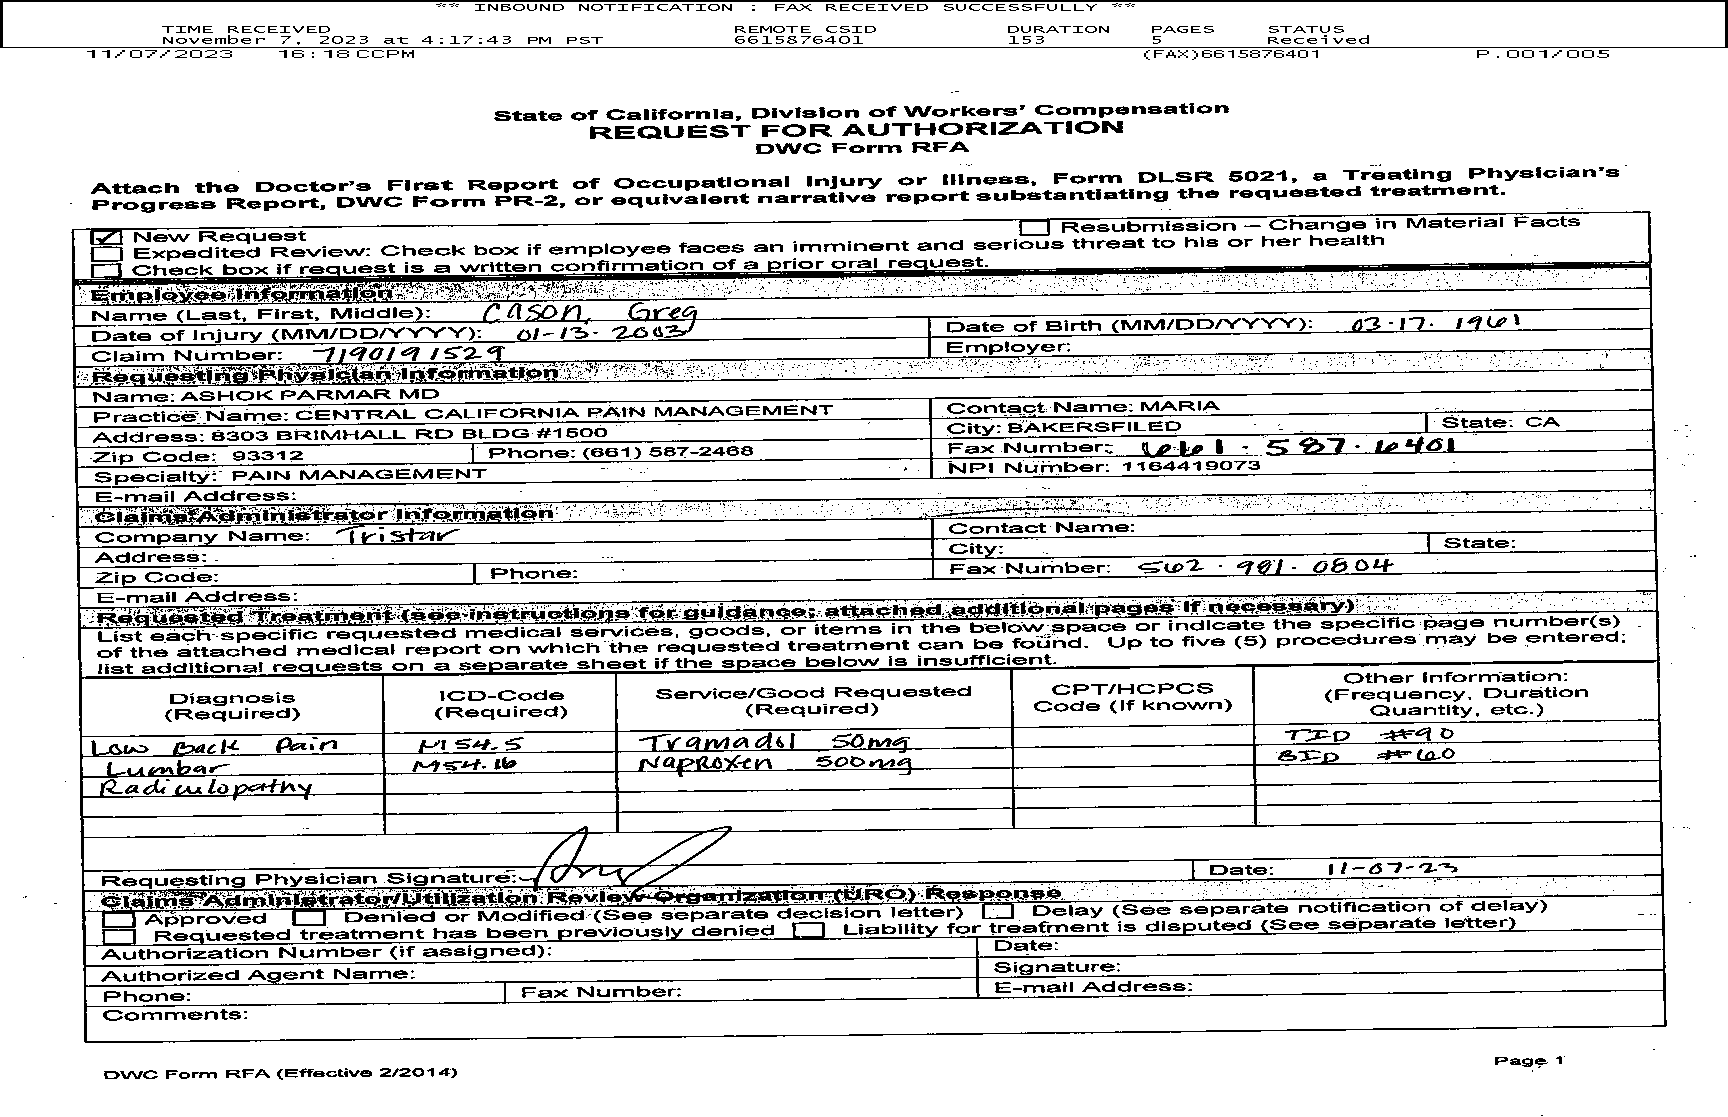 ** INBOUND NOTIFICATION : FAX RECEIVED SUCCESSFULLY **
TIME RECEIVED REMOTE CSID DURATION PAGES STATUS
November 7, 2023 at 4:17:43 PM PST 6615876401 153 5 Received
11/07/2023 16:18 CCPM (FAX)6615876401 P.001/005
State of California, Division of Workers' Compensation
REQUEST FOR AUTHORIZATION
DWC Form RFA
Attach the Doctor's First Report of Occupational Injury or Illness, Form DLSR 5021, a Treating Physician's
Progress Report, DWC Form PR-2, or equivalent narrative report substantiating the requested treatment.
New Request Resubmission – Change in Material Facts
Expedited Review: Check box if employee faces an imminent and serious threat to his or her health
Check box if request is a written confirmation of a prior oral request.
Employee Information
Name (Last, First, Middle): Cason, Greg
Date of Injury (MM/DD/YYYY): 01-13-2003 Date of Birth (MM/DD/YYYY): 03-17-1961
Claim Number: 7190191529 Employer:
Requesting Physician Information
Name: ASHOK PARMAR MD
Practice Name: CENTRAL CALIFORNIA PAIN MANAGEMENT Contact Name: MARIA
Address: 8303 BRIMHALL RD BLDG #1500 City: BAKERSFILED State: CA
Zip Code: 93312 Phone: (661) 587-2468 Fax Number: 661-587-6401
Specialty: PAIN MANAGEMENT NPI Number: 1164419073
E-mail Address:
Claims Administrator Information
Company Name: Tristar Contact Name:
Address: City: State:
Zip Code: Phone: Fax Number: 562-981-0804
E-mail Address:
Requested Treatment (see instructions for guidance; attached additional pages if necessary)
List each specific requested medical services, goods, or items in the below space or indicate the specific page number(s)
of the attached medical report on which the requested treatment can be found. Up to five (5) procedures may be entered;
list additional requests on a separate sheet if the space below is insufficient.
Diagnosis (Required) ICD-Code (Required) Service/Good Requested (Required) CPT/HCPCS Code (If known) Other Information: (Frequency, Duration Quantity, etc.)
Low Back Pain M54.5 Tramadol 50mg TID #90
Lumbar M54.16 Naproxen 500mg BID #60
Radiculopathy
Requesting Physician Signature: Date: 11-07-23
Claims Administrator/Utilization Review Organization (URO) Response
Approved Denied or Modified (See separate decision letter) Delay (See separate notification of delay)
Requested treatment has been previously denied Liability for treatment is disputed (See separate letter)
Authorization Number (if assigned): Date:
Authorized Agent Name: Signature:
Phone: Fax Number: E-mail Address:
Comments:
DWC Form RFA (Effective 2/2014) Page 1